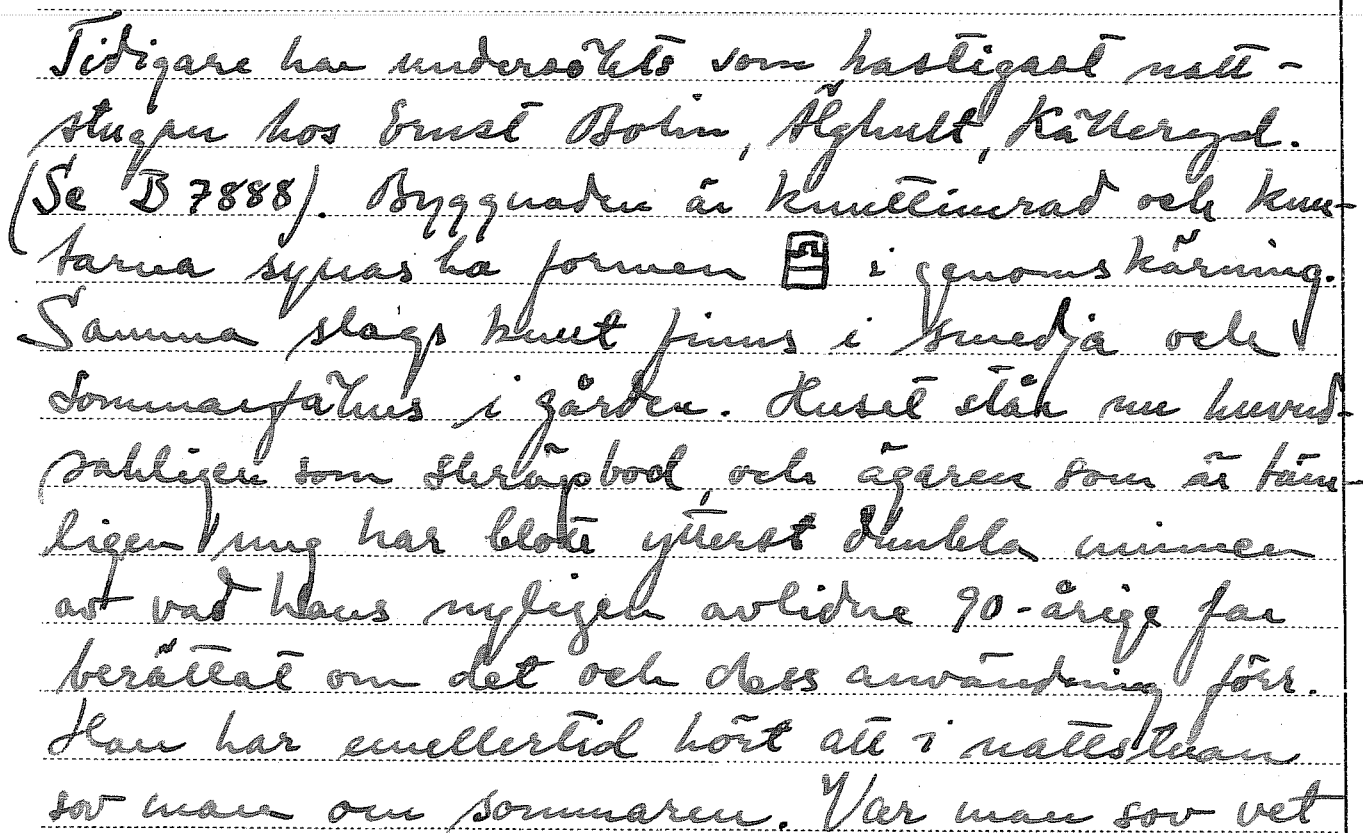 Tidigare har undersökts som hastigast natt-
stugan hos Ernst Bolin, Älghult, Källeryd.
(Se B 7888). Byggnaden är knuttimrad och knu-
tarna synas ha formen i genomskärning.
Samma slags knut finns i smedja och
sommarfähus i gården. Huset står nu huvud-
sakligen som skräpbod, och ägaren som är täm-
ligen ung har blott ytterst dunkla minnen
av vad hans nyligen avlidne 90-årige far
berättat om det och dess användning förr.
Han har emellertid hört att i nattstuan
sov man om sommaren. Var man sov vet